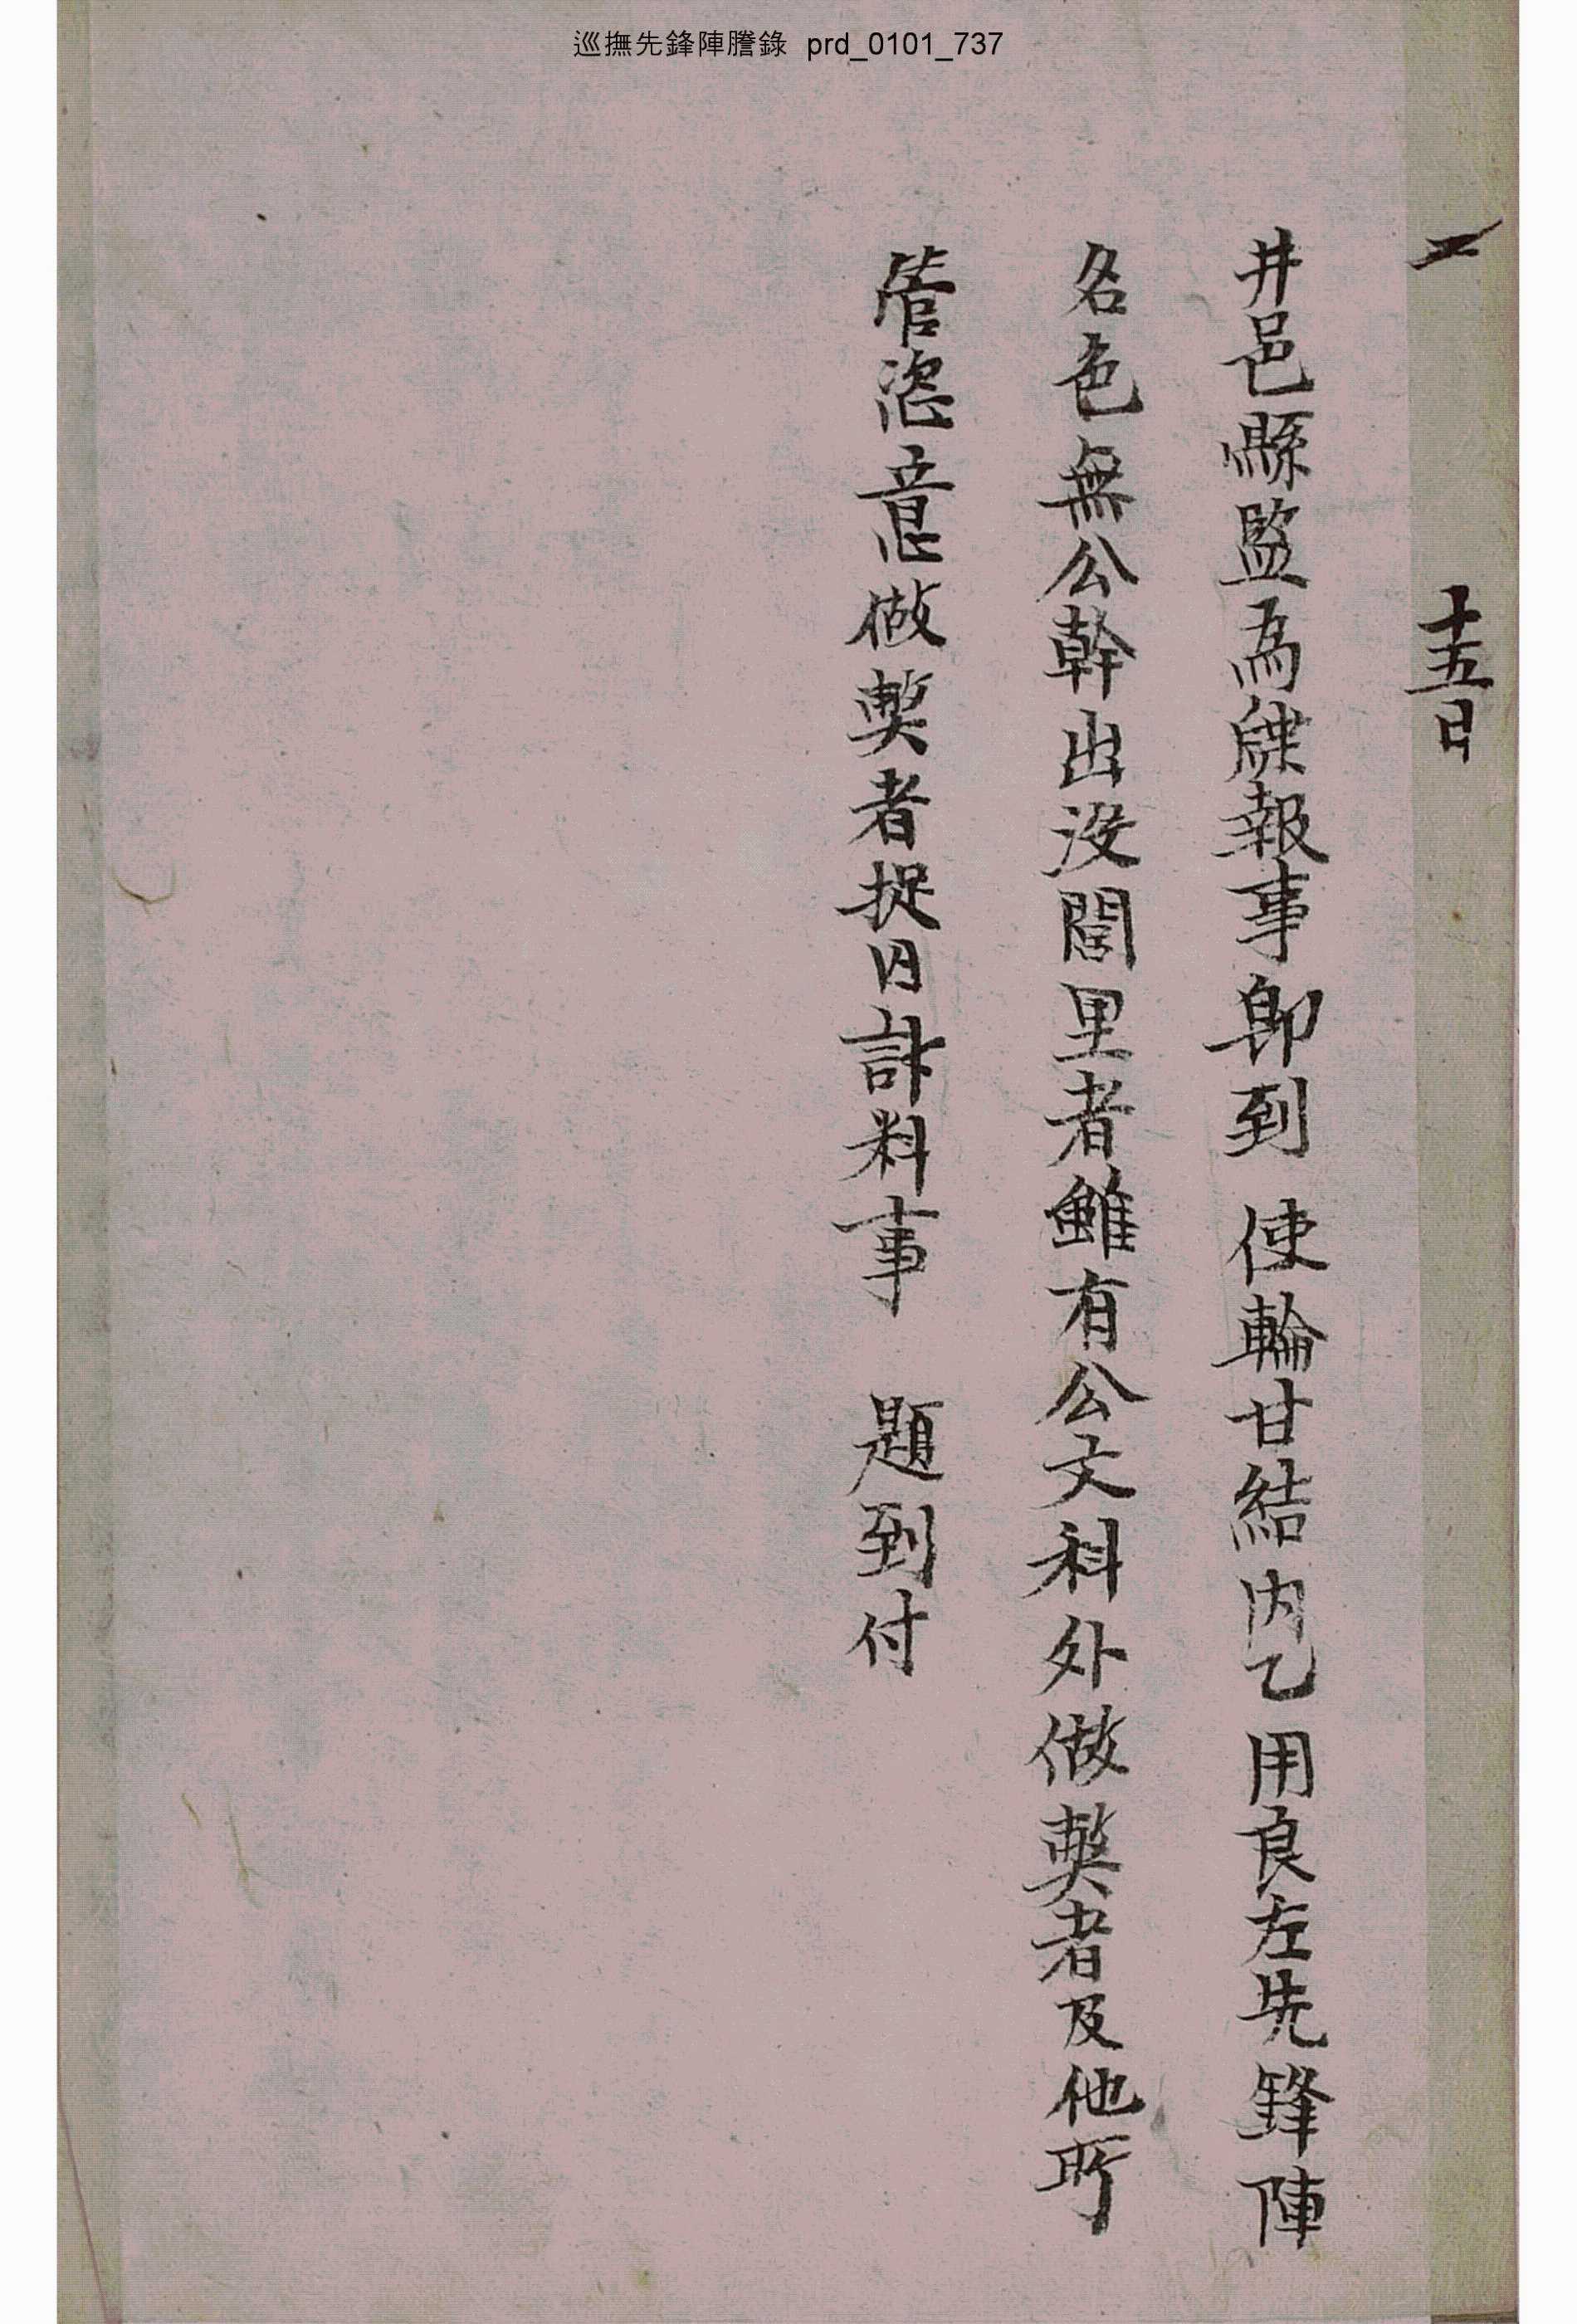 巡撫先鋒陣謄錄 prd_0101_737
一
十五日
井邑縣監爲牒報事卽到 使輪甘結內乙用良左先鋒陣
名色無公幹出沒閭里者雖有公文科外做弊者及他所
管恣意做弊者捉囚計料事 題到付